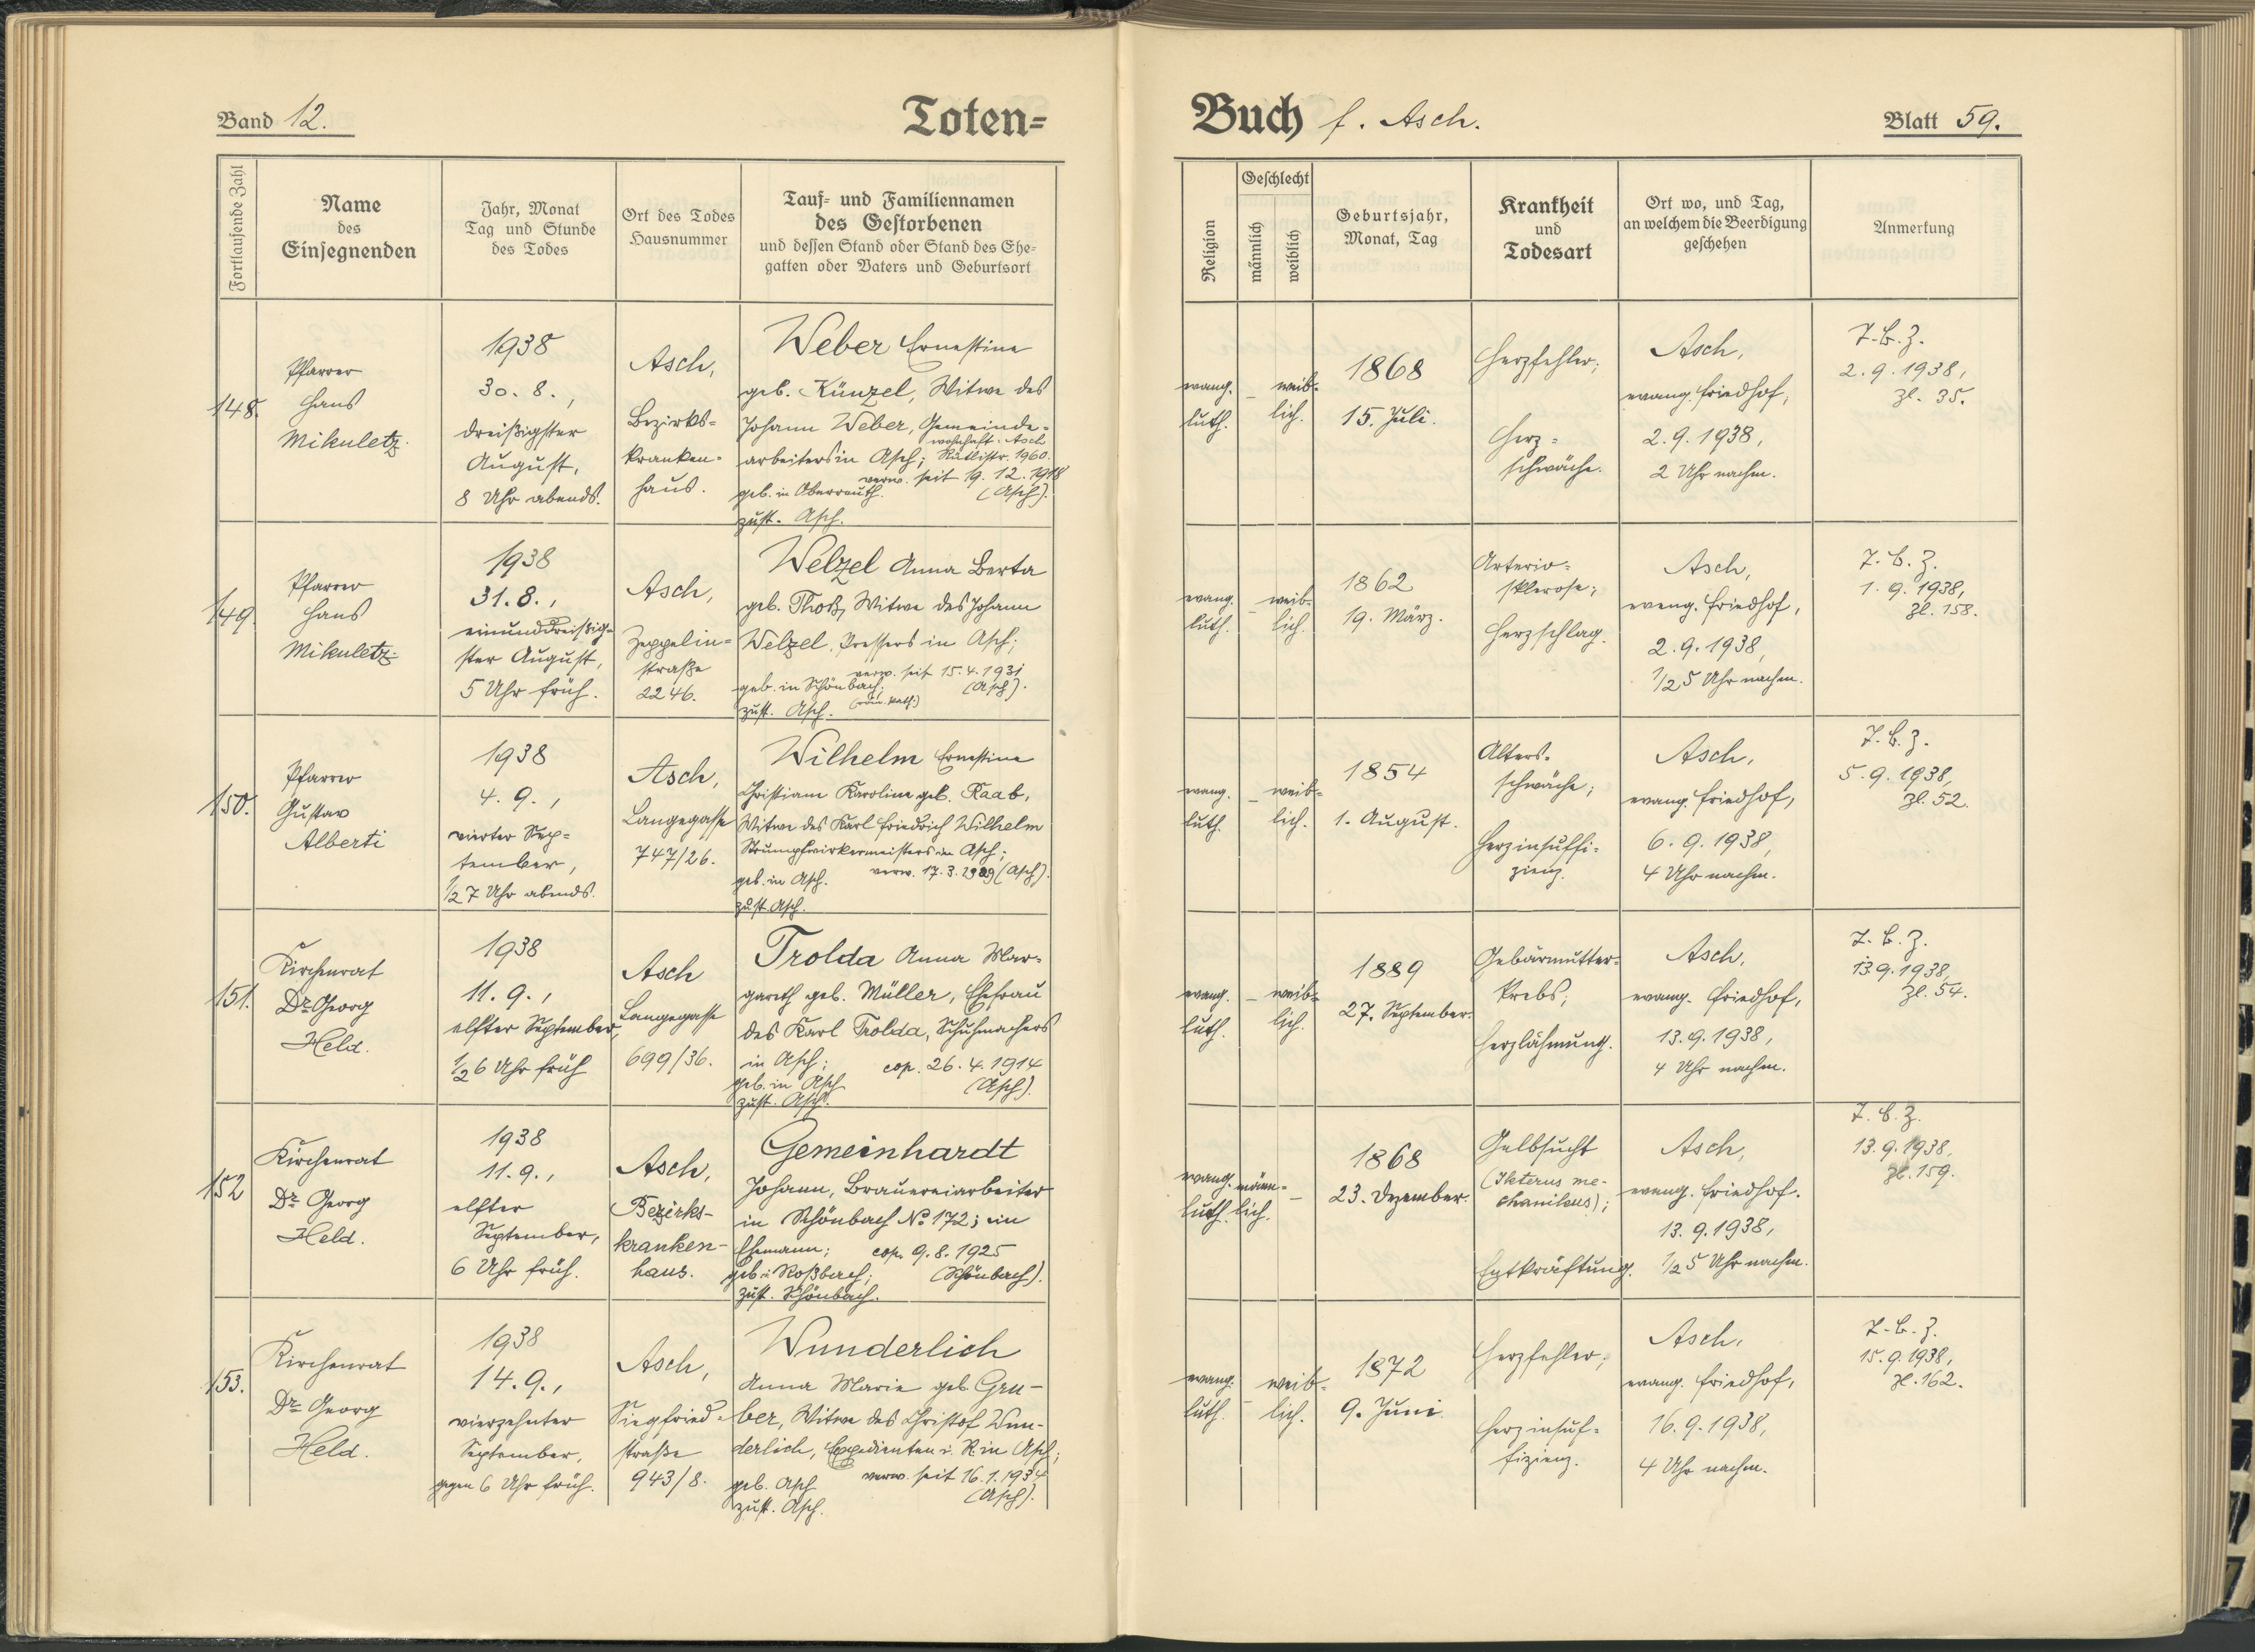 Band 12.
Toten=
Fortlaufende Zahl
Name
des
Einsegnenden
Jahr, Monat
Tag und Stunde
des Todes
Ort des Todes
Hausnummer
Tauf= und Familiennamen
des Gestorbenen
und dessen Stand oder Stand des Ehe=
gatten oder Vaters und Geburtsort
148.
Pfarrer
Hans
Mikuletz.
1938
30. 8.,
dreißigster
August,
8 Uhr abends.
Asch,
Bezirks=
kranken=
haus.
Weber Ernestine
geb. Künzel, Witwe des
Johann Weber, Gemeinde=
wohnhaft: Asch
arbeiters in Asch; 1960.
verw. seit 19. 12. 1918
geb. in Oberreuth. (Asch).
zust. Asch.
149.
Pfarrer
Hans
Mikuletz.
1938
31. 8.,
einunddreißig=
ster August,
5 Uhr früh.
Asch,
Zeppelin=
straße
2246.
Welzel Anna Berta
geb. Thoß, Witwe des Johann
Welzel, Pressers in Asch;
verw. seit 15. 4. 1931
geb. in Schönbach; (Asch).
zust. Asch. (röm. kath.)
150.
Pfarrer
Gustav
Alberti
1938
4. 9.,
vierter Sep=
tember,
1/2 7 Uhr abends.
Asch,
Langegasse
747/26.
Wilhelm Ernestine
Christiane Karoline geb. Raab,
Witwe des Karl Friedrich Wilhelm
Strumpfwirkermeisters in Asch;
geb. in Asch. verw. 17. 3. (Asch).
zust. Asch.
151.
Kirchenrat
Dr. Georg
Held.
1938
11. 9.,
elfter September,
1/2 6 Uhr früh
Asch
Langegasse
699/36.
Trolda Anna Mar=
gareth geb. Müller, Ehefrau
des Karl Trolda, Schuhmachers
in Asch; cop. 26. 4. 1914
geb. in Asch (Asch).
zust. Asch.
152
Kirchenrat
Dr. Georg
Held.
1938
11. 9.,
elfter
September,
6 Uhr früh.
Asch,
Bezirks-
kranken-
haus.
Gemeinhardt
Johann, Brauereiarbeiter
in Schönbach No 172; ein
Ehemann; cop. 9. 8. 1925
geb. i. Roßbach; (Schönbach).
zust. Schönbach.
153.
Kirchenrat
Dr. Georg
Held.
1938
14. 9.,
vierzehnter
September,
gegen 6 Uhr früh.
Asch,
Siegfried=
straße
943/8.
Wunderlich
Anna Marie geb. Gru-
ber, Witwe des Christof Wun-
derlich, Expedienten i. R. in Asch;
verw. seit 16. 1. 1934
geb. Asch (Asch).
zust. Asch.
Buch f. Asch.
Blatt 59.
Religion
Geschlecht
männlich
weiblich
Geburtsjahr,
Monat, Tag
Krankheit
und
Todesart
Ort wo, und Tag,
an welchem die Beerdigung
geschehen
Anmerkung
evang.
luth.
–
weib=
lich.
1868
15. Juli.
Herzfehler;
Herz=
schwäche.
Asch,
evang. Friedhof,
2. 9. 1938,
2 Uhr nachm.
T. B. Z.
2. 9. 1938,
Zl. 35.
evang.
luth.
–
weib=
lich.
1862
19. März.
Arterio=
sklerose;
Herzschlag.
Asch,
evang. Friedhof,
2. 9. 1938,
1/2 5 Uhr nachm.
T. B. Z.
1. 9. 1938,
Zl. 158.
evang.
luth.
–
weib=
lich.
1854
1. August.
Alters=
schwäche;
Herzinsuffi=
zienz.
Asch,
evang. Friedhof,
6. 9. 1938,
4 Uhr nachm.
T. B. Z.
5. 9. 1938,
Zl. 52.
evang.
luth.
–
weib=
lich.
1889
27. September.
Gebärmutter=
krebs;
Herzlähmung.
Asch,
evang. Friedhof,
13. 9. 1938,
4 Uhr nachm.
T. B. Z.
13. 9. 1938,
Zl. 54.
evang.
luth.
männ=
lich.
–
1868
23. Dezember.
Gelbsucht
(Ikterus me-
chanikus);
Entkräftung.
Asch,
evang. Friedhof.
13. 9. 1938,
1/2 5 Uhr nachm.
T. B. Z.
13. 9. 1938,
Zl. 159.
evang.
luth.
–
weib=
lich.
1872
9. Juni
Herzfehler;
Herzinsuf=
fizienz.
Asch,
evang. Friedhof,
16. 9. 1938,
4 Uhr nachm.
T. B. Z.
15. 9. 1938,
Zl. 162.